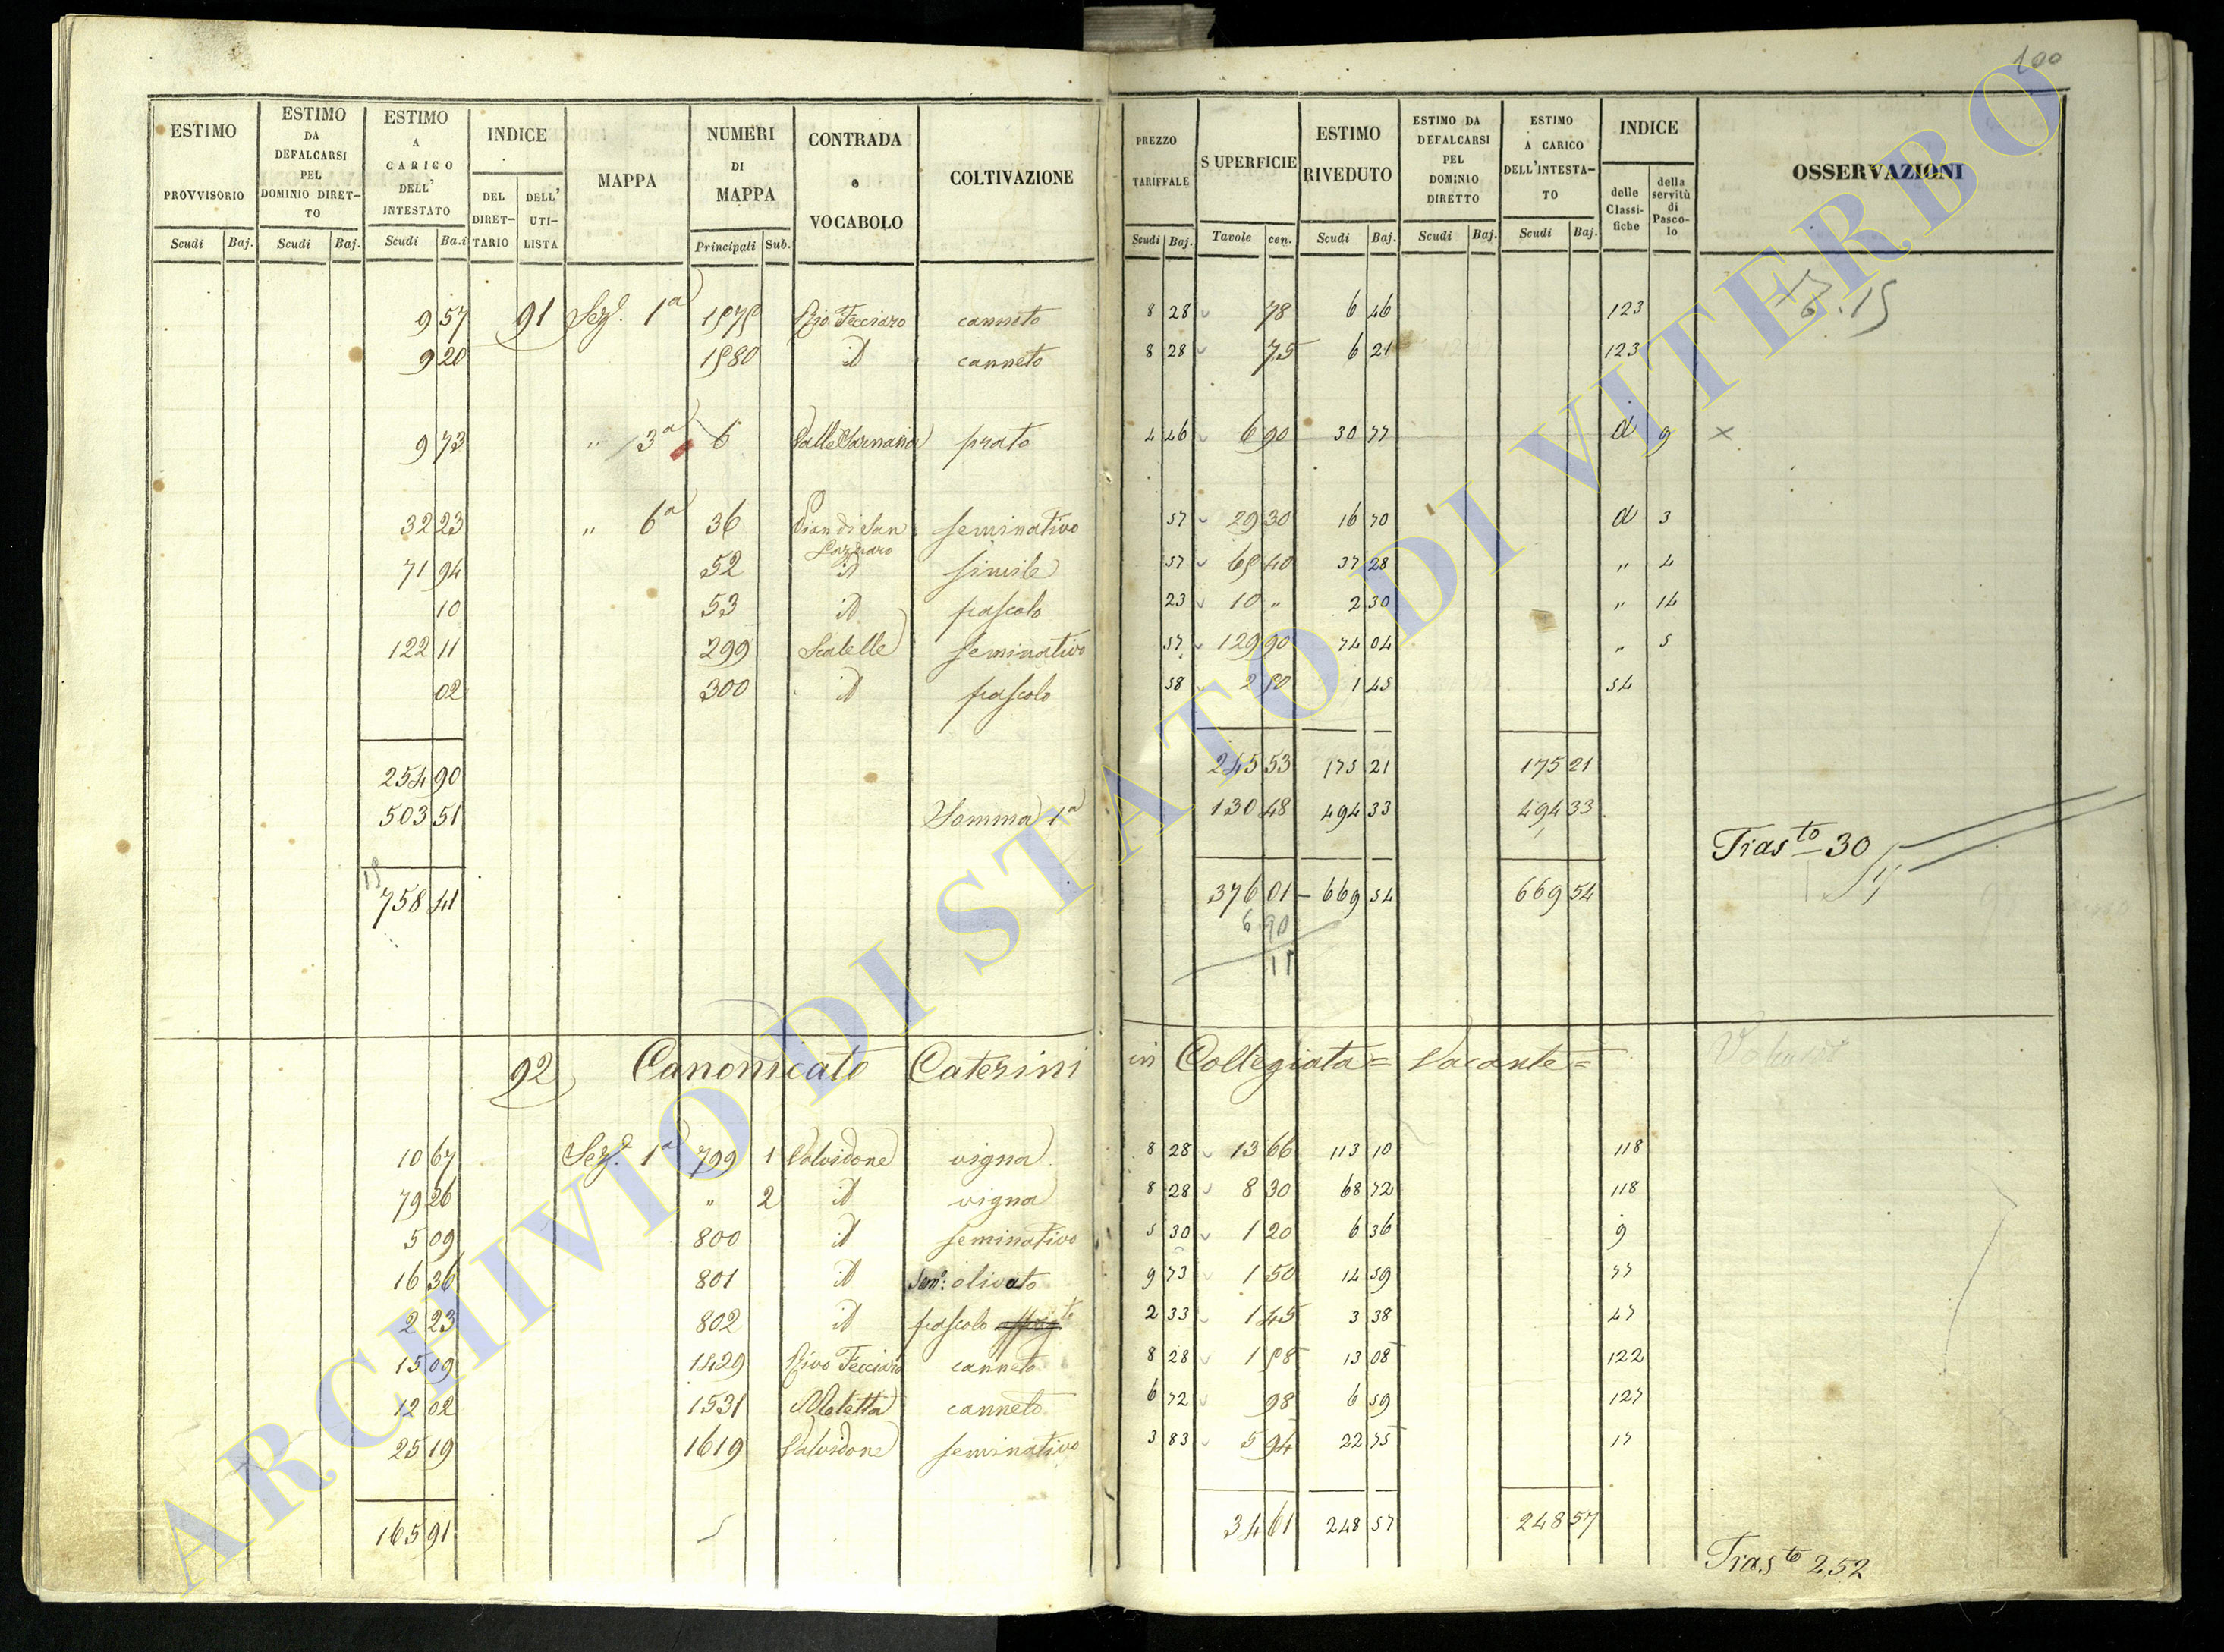 100
ESTIMO PROVVISORIO | ESTIMO DA DEFALCARSI PEL DOMINIO DIRET-TO | ESTIMO A CARICO DELL' INTESTATO | INDICE | MAPPA | NUMERI DI MAPPA | CONTRADA o VOCABOLO | COLTIVAZIONE | PREZZO TARIFFALE | SUPERFICIE | ESTIMO RIVEDUTO | ESTIMO DA DEFALCARSI PEL DOMINIO DIRETTO | ESTIMO A CARICO DELL'INTESTA-TO | INDICE | OSSERVAZIONI
DEL DIRET-TARIO | DELL' UTI-LISTA | delle Classi-fiche | della servitù di Pasco-lo
Scudi | Baj. | Scudi | Baj. | Scudi | Ba.i | Principali | Sub. | Scudi | Baj. | Tavole | cen. | Scudi | Baj. | Scudi | Baj. | Scudi | Baj.
9 57 | 91 | Sez. 1ª | 1979 | Rio Fecciaro | canneto | 8 28 | 78 | 6 46 | 123
9 20 | 1980 | id | canneto | 8 28 | 75 | 6 21 | 123
9 73 | " 3ª | 6 | prato | 4 46 | 6 90 | 30 77 | d | 9 | x
32 23 | " 6ª | 36 | Pian di San Lazzaro | seminativo | 57 | 29 30 | 16 70 | d | 3
71 94 | 52 | id | simile | 57 | 65 40 | 37 28 | " | 4
10 | 53 | id | pascolo | 23 | 10 " | 2 30 | " | 14
122 11 | 299 | Scatelle | seminativo | 57 | 129 90 | 74 04 | " | 5
02 | 300 | id | pascolo | 58 | 2 50 | 1 45 | 54
254 90 | 245 53 | 175 21 | 175 21
503 51 | Somma 1ª | 130 48 | 494 33 | 494 33
Tras.to 30
758 41 | 376 01 | 669 54 | 669 54
6 90
92 Canonicato Caterini in Collegiata = Vacante =
10 67 | Sez. 1ª | 799 | 1 | Valvidone | vigna | 8 28 | 13 66 | 113 10 | 118
79 26 | " | 2 | id | vigna | 8 28 | 8 30 | 68 72 | 118
5 09 | 800 | id | seminativo | 5 30 | 1 20 | 6 36 | 9
16 36 | 801 | id | Sem.o olivato | 9 73 | 1 50 | 14 59 | 77
2 23 | 802 | id | pascolo | 2 33 | 1 45 | 3 38 | 47
15 09 | 1429 | Rivo Fecciaro | canneto | 8 28 | 1 58 | 13 08 | 122
12 02 | 1531 | Moletta | canneto | 6 72 | 98 | 6 59 | 127
25 19 | 1619 | Valvidone | seminativo | 3 83 | 5 94 | 22 75 | 17
165 91 | 34 61 | 248 57 | 248 57
Tras.to 252
ARCHIVIO DI STATO DI VITERBO